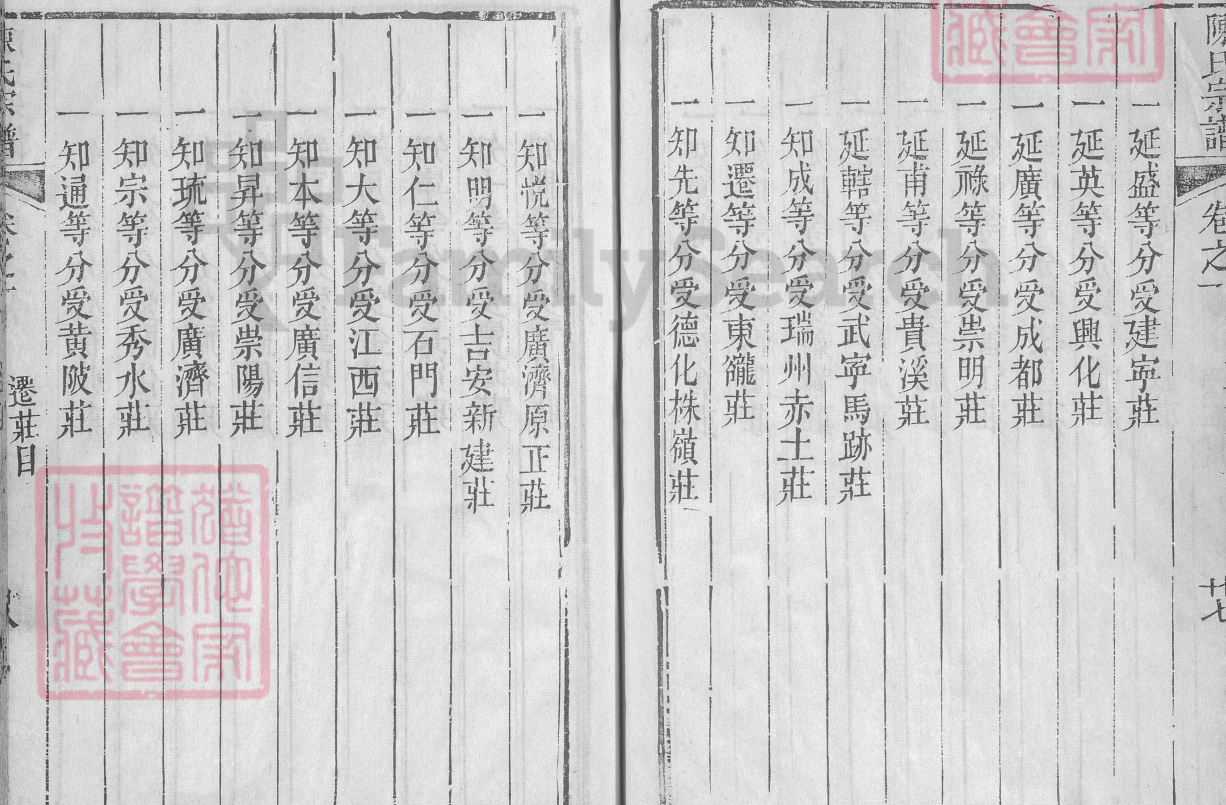 陳氏宗譜 卷之一 廿七
一延盛等分受建寧莊
一延英等分受興化莊
一延廣等分受成都莊
一延祿等分受崇明莊
一延甫等分受貴溪莊
一延轄等分受武寧馬跡莊
一知成等分受瑞州赤土莊
一知遷等分受東巃莊
一知先等分受德化株嶺莊
一知悦等分受廣濟原正莊
一知明等分受吉安新建莊
一知仁等分受石門莊
一知大等分受江西莊
一知本等分受廣信莊
一知昇等分受崇陽莊
一知琉等分受廣濟莊
一知宗等分受秀水莊
一知通等分受黃陂莊
遷莊目
FamilySearch